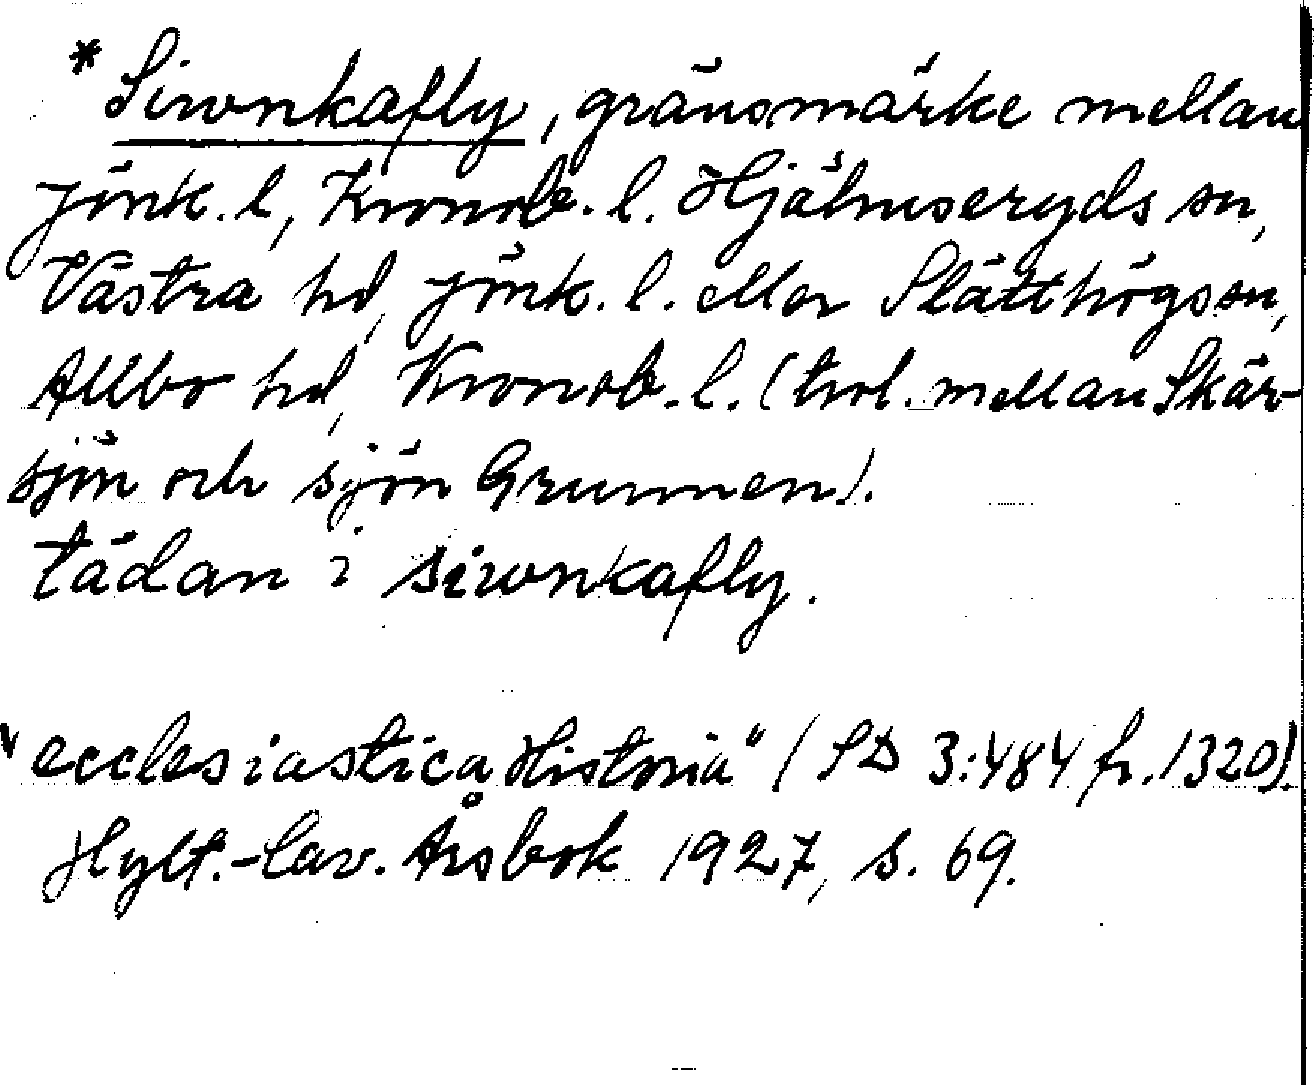 * Sirvnkafly, gränsmärke mellan
Jönk. l, Kronob. l. Hjälmseryds sn,
Västra hd, Jönk. l. eller Slätthögs sn,
Allbo hd, Kronob. l. (trol. mellan Skär-
sjön och sjön Grunnen).
tädan i sirvnkafly.
"ecclesiastica Historia" (SD 3:484 fr. 1320).
Hylt.-Cav. Årsbok 1927, s. 69.